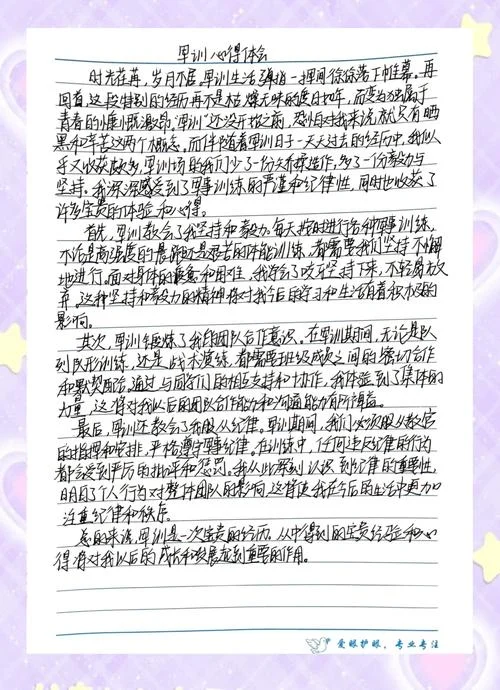 军训心得体会
时光荏苒,岁月不居,军训生活弹指一挥间徐徐落下帷幕。再
回首,这段特别的经历再不是枯燥无味的度日如年,而变为独属于
青春的慷慨激昂。"军训"还没开始之前,恐怕对我来说就只有晒
黑和辛苦这两个概念。而伴随着军训日子一天天过去的经历中,我似
乎又收获颇多,军训场的我们少了一份矫揉造作,多了一份毅力与
坚持。我深深感受到了军事训练的严谨和纪律性,同时也收获了
许多宝贵的体验和心得。
首先,军训教会了我坚持和毅力。每天按时进行各种军事训练,
不论是高强度的晨跑还是艰苦的体能训练,都需要我们坚持不懈
地进行。面对身体的疲惫和困难,我学会了咬牙坚持下来,不轻易放
弃,这种坚持和毅力的精神将对我今后的学习和生活有着积极的
影响。
其次,军训锻炼了我的团队合作意识。在军训期间,无论是队
列队形训练,还是战术演练,都需要班级成员之间的密切合作
和默契配合。通过与同学们的相互支持和协作,我体会到了集体的
力量,这将对我以后的团队合作能力和沟通能力有所裨益。
最后,军训还教会了我服从纪律。军训期间,我们必须服从教官
的指挥和安排,严格遵守军事纪律。在训练中,任何违反纪律的行为
都会受到严厉的批评和惩罚。我从此深刻认识到纪律的重要性,
明白了个人行为对整体团队的影响,这将使我在今后的生活中更加
注重纪律和秩序。
总的来说,军训是一次宝贵的经历,从中得到的宝贵经验和心
得将对我以后的成长和发展起到重要的作用。
爱眼护眼,专业专注